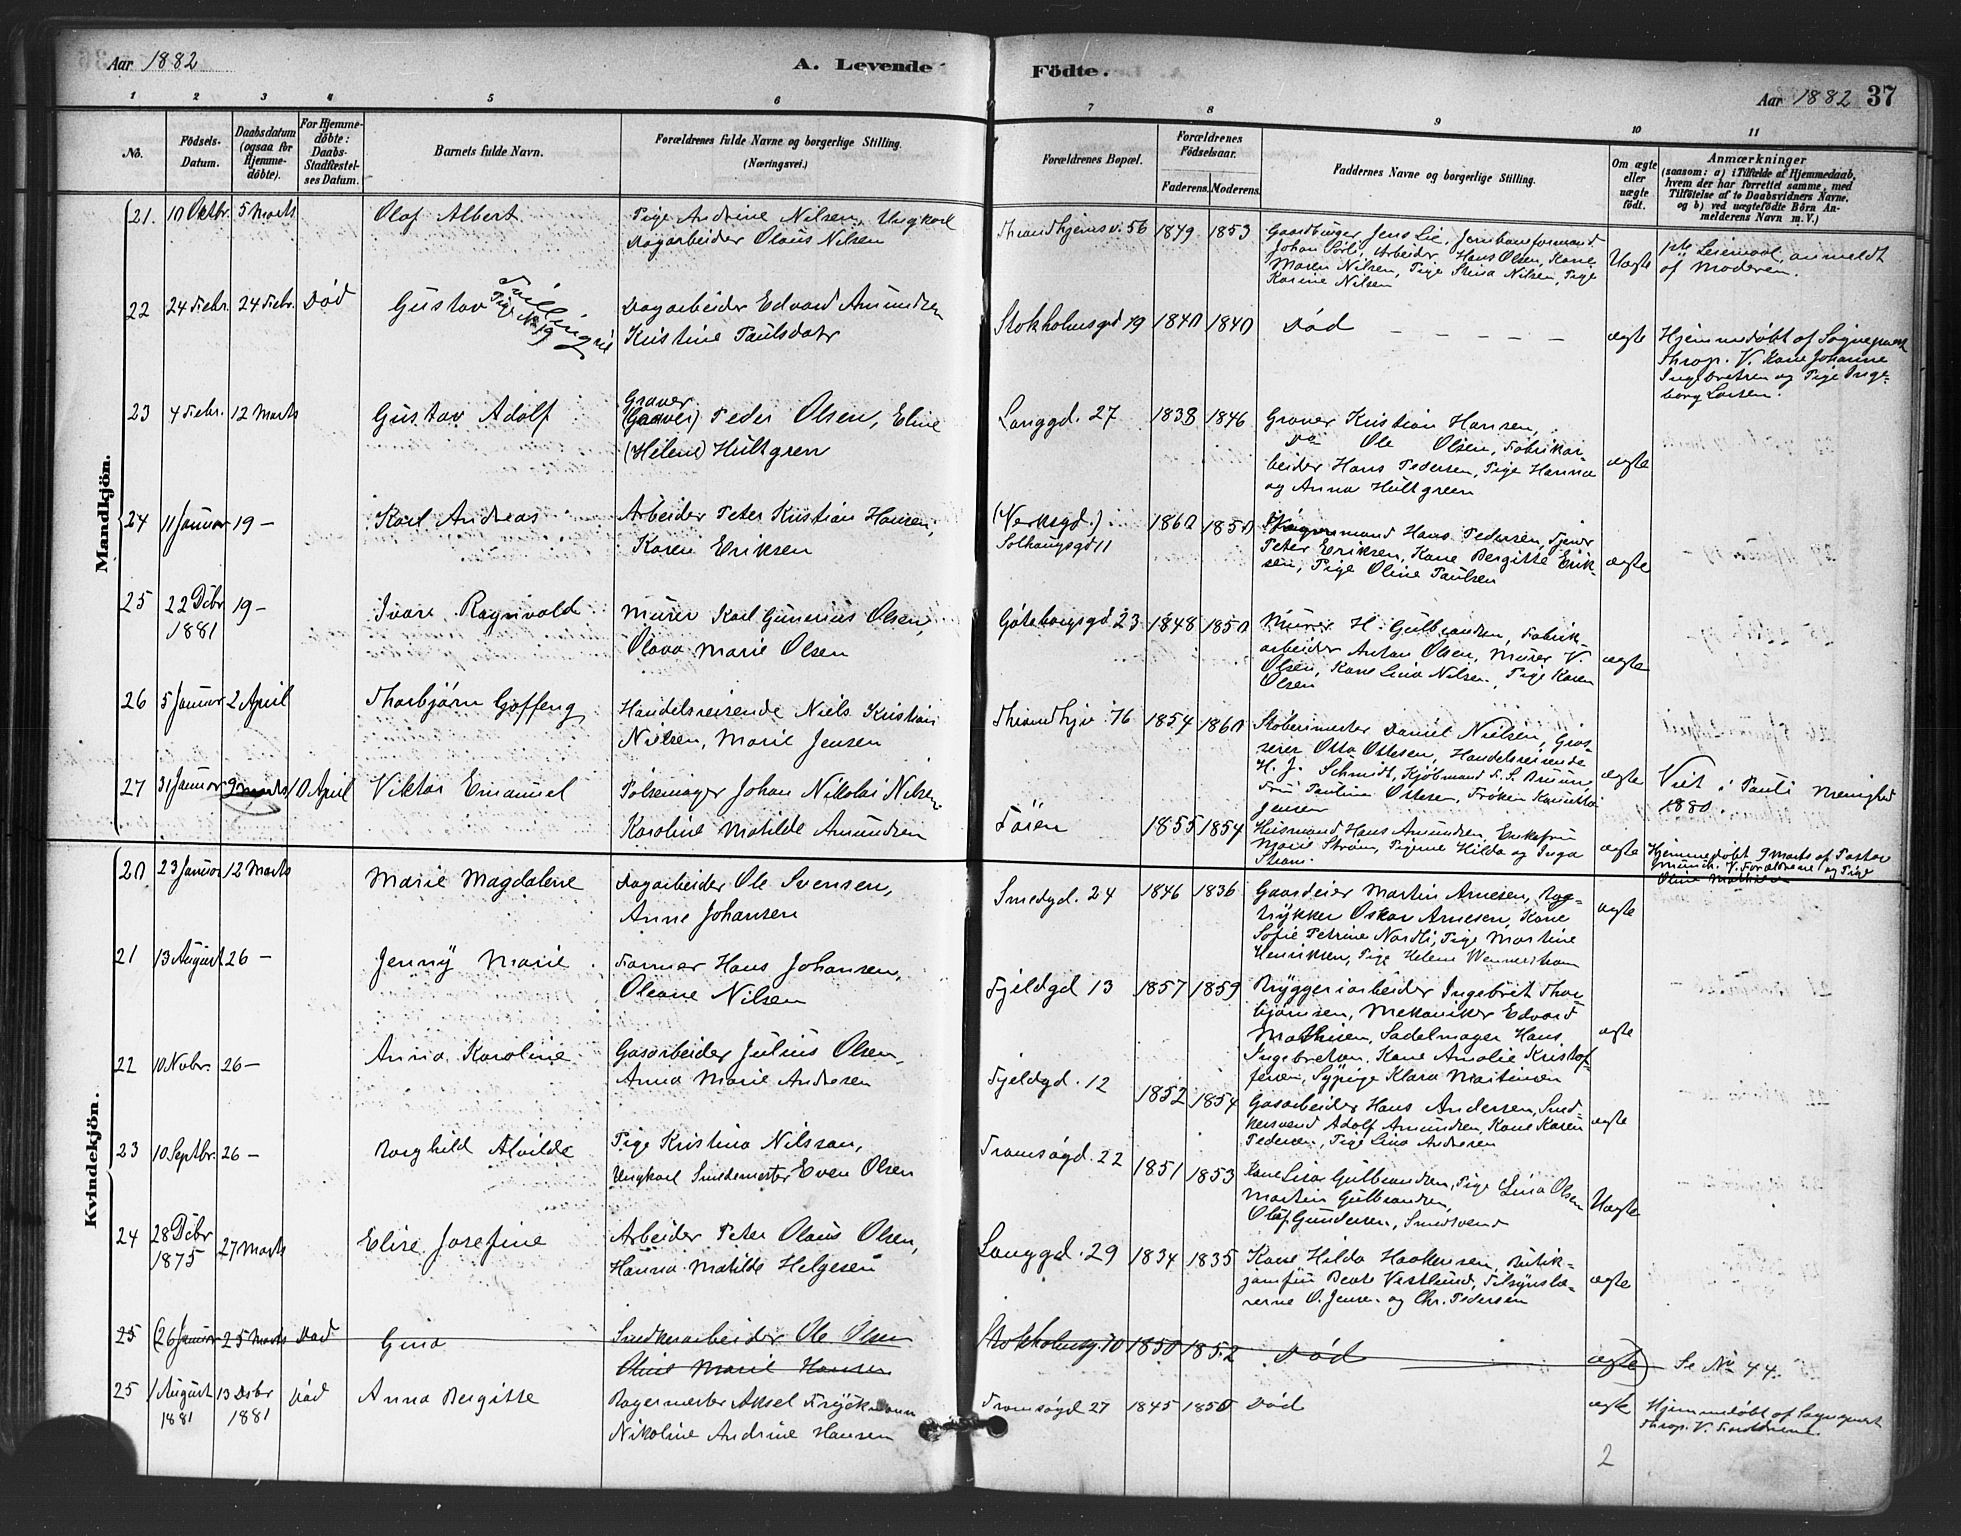 Aar 1882
A. Levende
Födte.
Aar 1882 37
1 2 3 4 5 6 7 8 9 10 11
No.
Födsels-
Datum.
Daabsdatum
(ogsaa for
Hjemme-
döbte).
For Hjemme-
döbte:
Daabs-
Stadfæstel-
ses Datum.
Barnets fulde Navn.
Forældrenes fulde Navne og borgerlige Stilling.
(Næringsvei.)
Forældrenes Bopæl.
Forældrenes
Födselsaar.
Faderens. Moderens.
Faddernes Navne og borgerlige Stilling.
Om ægte
eller
uægte
födt.
Anmærkninger
(saasom: a) i Tilfælde af Hjemmedaab,
hvem der har forrettet samme, med
Tilföielse af to Daabsvidners Navne.
og b) ved uægtefödte Börn An-
melderens Navn m. V.)
Mandkjön.
21. 10 Oktbr. 5 Marts Olaf Albert
Pige Andrine Nilsen, Ungkarl
Dagarbeider Olaus Nilsen
Throndhjemsv. 56 1849 1853
Gaardbruger Jens Lie, Jernbaneformand
Johan Sörli, Arbeider Hans Olsen, Kone
Maren Nilsen, Pige Stina Nilsen, Pige
Karine Nilsen
Uægte
1ste Leiermaal, anmeldt
af Moderen.
22 24 Febr. 24 Febr. Död Gustav
Tvilling til
Pige No 19
Dagarbeider Edvard Amundsen
Kristine Paulsdatr
Stokholmsgd 19 1840 1840 Död
ægte
Hjemmedöbt af Sognepræst
Throp. V. Kone Johanne
Ingebretsen og Pige Inge-
borg Larsen.
23 4 Febr. 12 Marts Gustav Adolf
Graver
(Garver) Peder Olsen, Eline
(Helene) Hultgren
Langgd. 27 1838 1846
Graver Kristian Hansen,
Do Ole Olsen, Fabrikar-
beider Hans Pedersen, Pige Hanna
og Anna Hultgreen
ægte
24 11 Januar 19 – Karl Andreas
Arbeider Peter Kristian Hansen,
Karen Eriksen
(Verksgd.)
Solhaugsgd 11
1860 1850
Vognmand Hans Pedersen,
Peter Eriksen, Kone Bergitte Erik-
sen, Pige Oline Paulsen
ægte
25 22 Dcbr 19 –
1881
Ivar Ragnvald
Murer Karl Gunerius Olsen,
Olava Marie Olsen
Göteborgsgd 23 1848 1850
Murer H. Gulbrandsen, Fabrik-
arbeider Anton Olsen, Murer V.
Olsen, Kone Lina Nilsen, Pige Karen
Olsen
ægte
26 5 Januar 2 April Thorbjörn Goffeng
Handelsreisende Niels Kristian
Nielsen, Marie Jensen
Throndhjv. 76 1854 1860
Stöberimester Daniel Nielsen, Gros-
serer Otto Ottesen, Handelsreisende
H. J. Schmidt, Kjöbmand F. S. Bruun,
Fru Paulina Ottesen, Fröken
Jensen
ægte
Viet i Pauli Menighed
1880.
27 31 Januar 9 Marts 10 April Viktor Emanuel
Pölsemager Johan Nikolai Nilsen
Karoline Matilde Amundsen
Töien 1855 1854
Husmand Hans Amundsen, Enkefru
Marie Ström, Pigerne Hilda og Inga
Ström.
ægte
Hjemmedöbt 9 Marts af Pastor
Munch. V. Forældrene og Pige
Oline
Kvindekjön.
20 23 Januar 12 Marts Marie Magdalene
Dagarbeider Ole Svensen,
Anne Johansen
Smedgd. 24 1846 1836
Gaardeier Martin Arnesen, Bog-
trykker Oskar Arnesen, Kone
Sofie Petrine Nordli, Pige Martine
Henriksen, Pige Helene Wennerström
ægte
21 13 August 26 – Jenny Marie
Farmer Hans Johansen,
Oleane Nilsen
Fjeldgd 13 1857 1859
Bryggeriarbeider Ingebret Thor-
björnsen, Mekaniker Edvard
Mathisen, Sadelmager Hans
Ingebretsen, Kone Amalie Kristof-
fersen, Sypige Klara Martinsen
ægte
22 10 Nvbr. 26 – Anna Karoline
Gasarbeider Julius Olsen,
Anna Marie Andresen
Fjeldgd. 12 1852 1854
Gasarbeider Hans Andersen, Sned-
kersvend Adolf Amundsen, Kone Karen
Pedersen, Pige Lina Andresen
ægte
23 10 Septbr. 26 – Borghild Alvilde
Pige Kristina Nilsson,
Ungkarl Smedemester Even Olsen
Tromsögd. 22 1851 1853
Kone Lisa Gulbrandsen, Pige Lina Olsen
Martin Gulbrandsen,
Olaf Gundersen, Smedsvend
Uægte
24 28 Dcbr 27 Marts
1875
Elise Josefine
Arbeider Peter Olaus Olsen,
Hanna Matilde Helgesen
Langgd. 29 1834 1835
Kone Hilda Haakensen, Butik-
jomfru Beate Vestlund, Tilsynslæ-
rerne O. Jensen og Chr. Pedersen
ægte
25 (26 Januar 25 Marts Död Gina
Snedkerarbeider Ole Olsen
Oline Marie Hansen
Stokholmsg. 10 1850 1852 Död
ægte)
Se No 44.
25 1 August 13 Dcbr Död Anna Bergitte
1881 1881
Bagermester Aksel Fryckmann
Nikoline Andrine Hansen
Tromsögd 27 1845 1850 Död
ægte
Hjemmedöbt af Sognepræst
Throp. V. Forældrene.
2